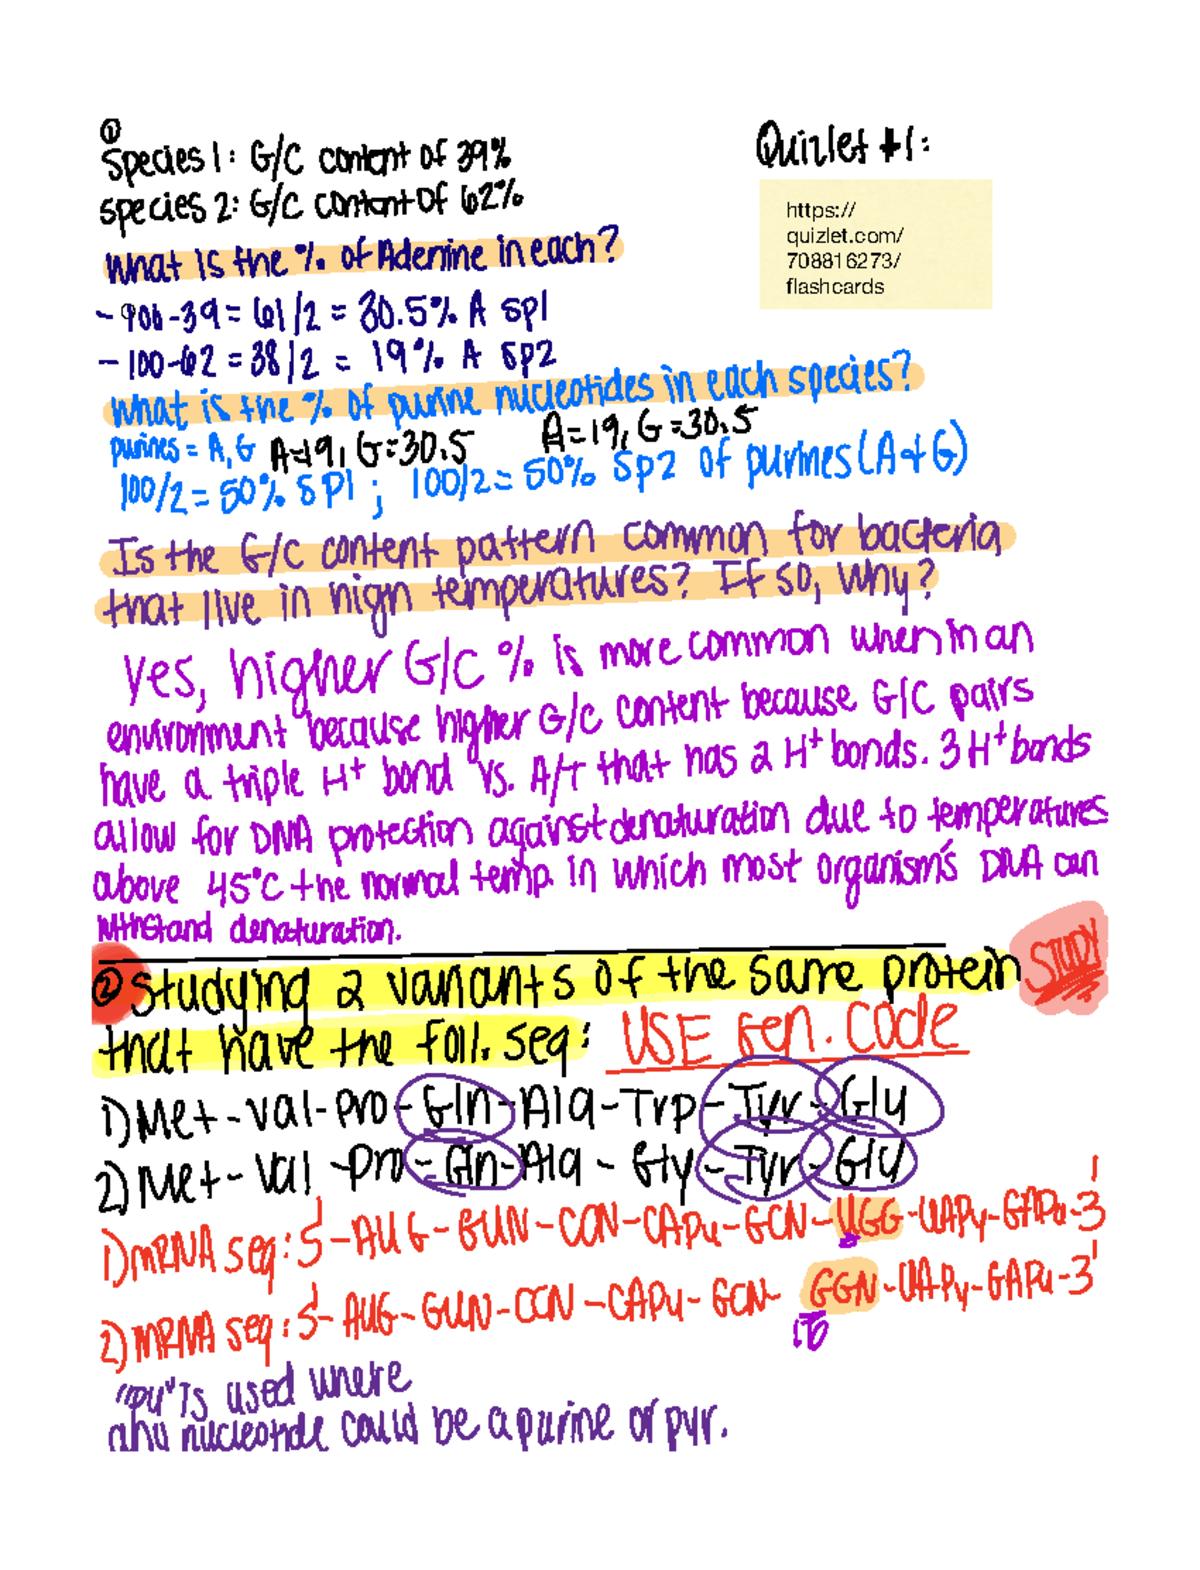 ①
Species 1: G/C content of 39%
species 2: G/C content of 62%
Quizlet #1:
https://
quizlet.com/
708816273/
flashcards
What is the % of Adenine in each?
- 100-39 = 61/2 = 30.5% A sp1
- 100-62 = 38/2 = 19% A sp2
What is the % of purine nucleotides in each species?
purines = A, G A=19, G=30.5 A=19, G=30.5
100/2 = 50% sp1 ; 100/2 = 50% sp2 of purines (A+G)
Is the G/C content pattern common for bacteria
that live in high temperatures? If so, why?
yes, higher G/C % is more common when in an
environment because higher G/C content because G/C pairs
have a triple H+ bond vs. A/T that has 2 H+ bonds. 3 H+ bonds
allow for DNA protection against denaturation due to temperatures
above 45°C the normal temp. in which most organism's DNA can
withstand denaturation.
② studying 2 variants of the same protein STUDY
that have the foll. seq: USE Gen. Code
1) Met-Val-Pro-Gln-Ala-Trp-Tyr-Glu
2) Met-Val-Pro-Gln-Ala-Gly-Tyr-Glu
1) mRNA seq: 5'-AUG-GUN-CCN-CAPu-GCN-UGG-UAPy-GAPu-3'
2) mRNA seq: 5'-AUG-GUN-CCN-CAPu-GCN-GGN-UAPy-GAPu-3'
"pu" is used where
any nucleotide could be a purine or pyr.